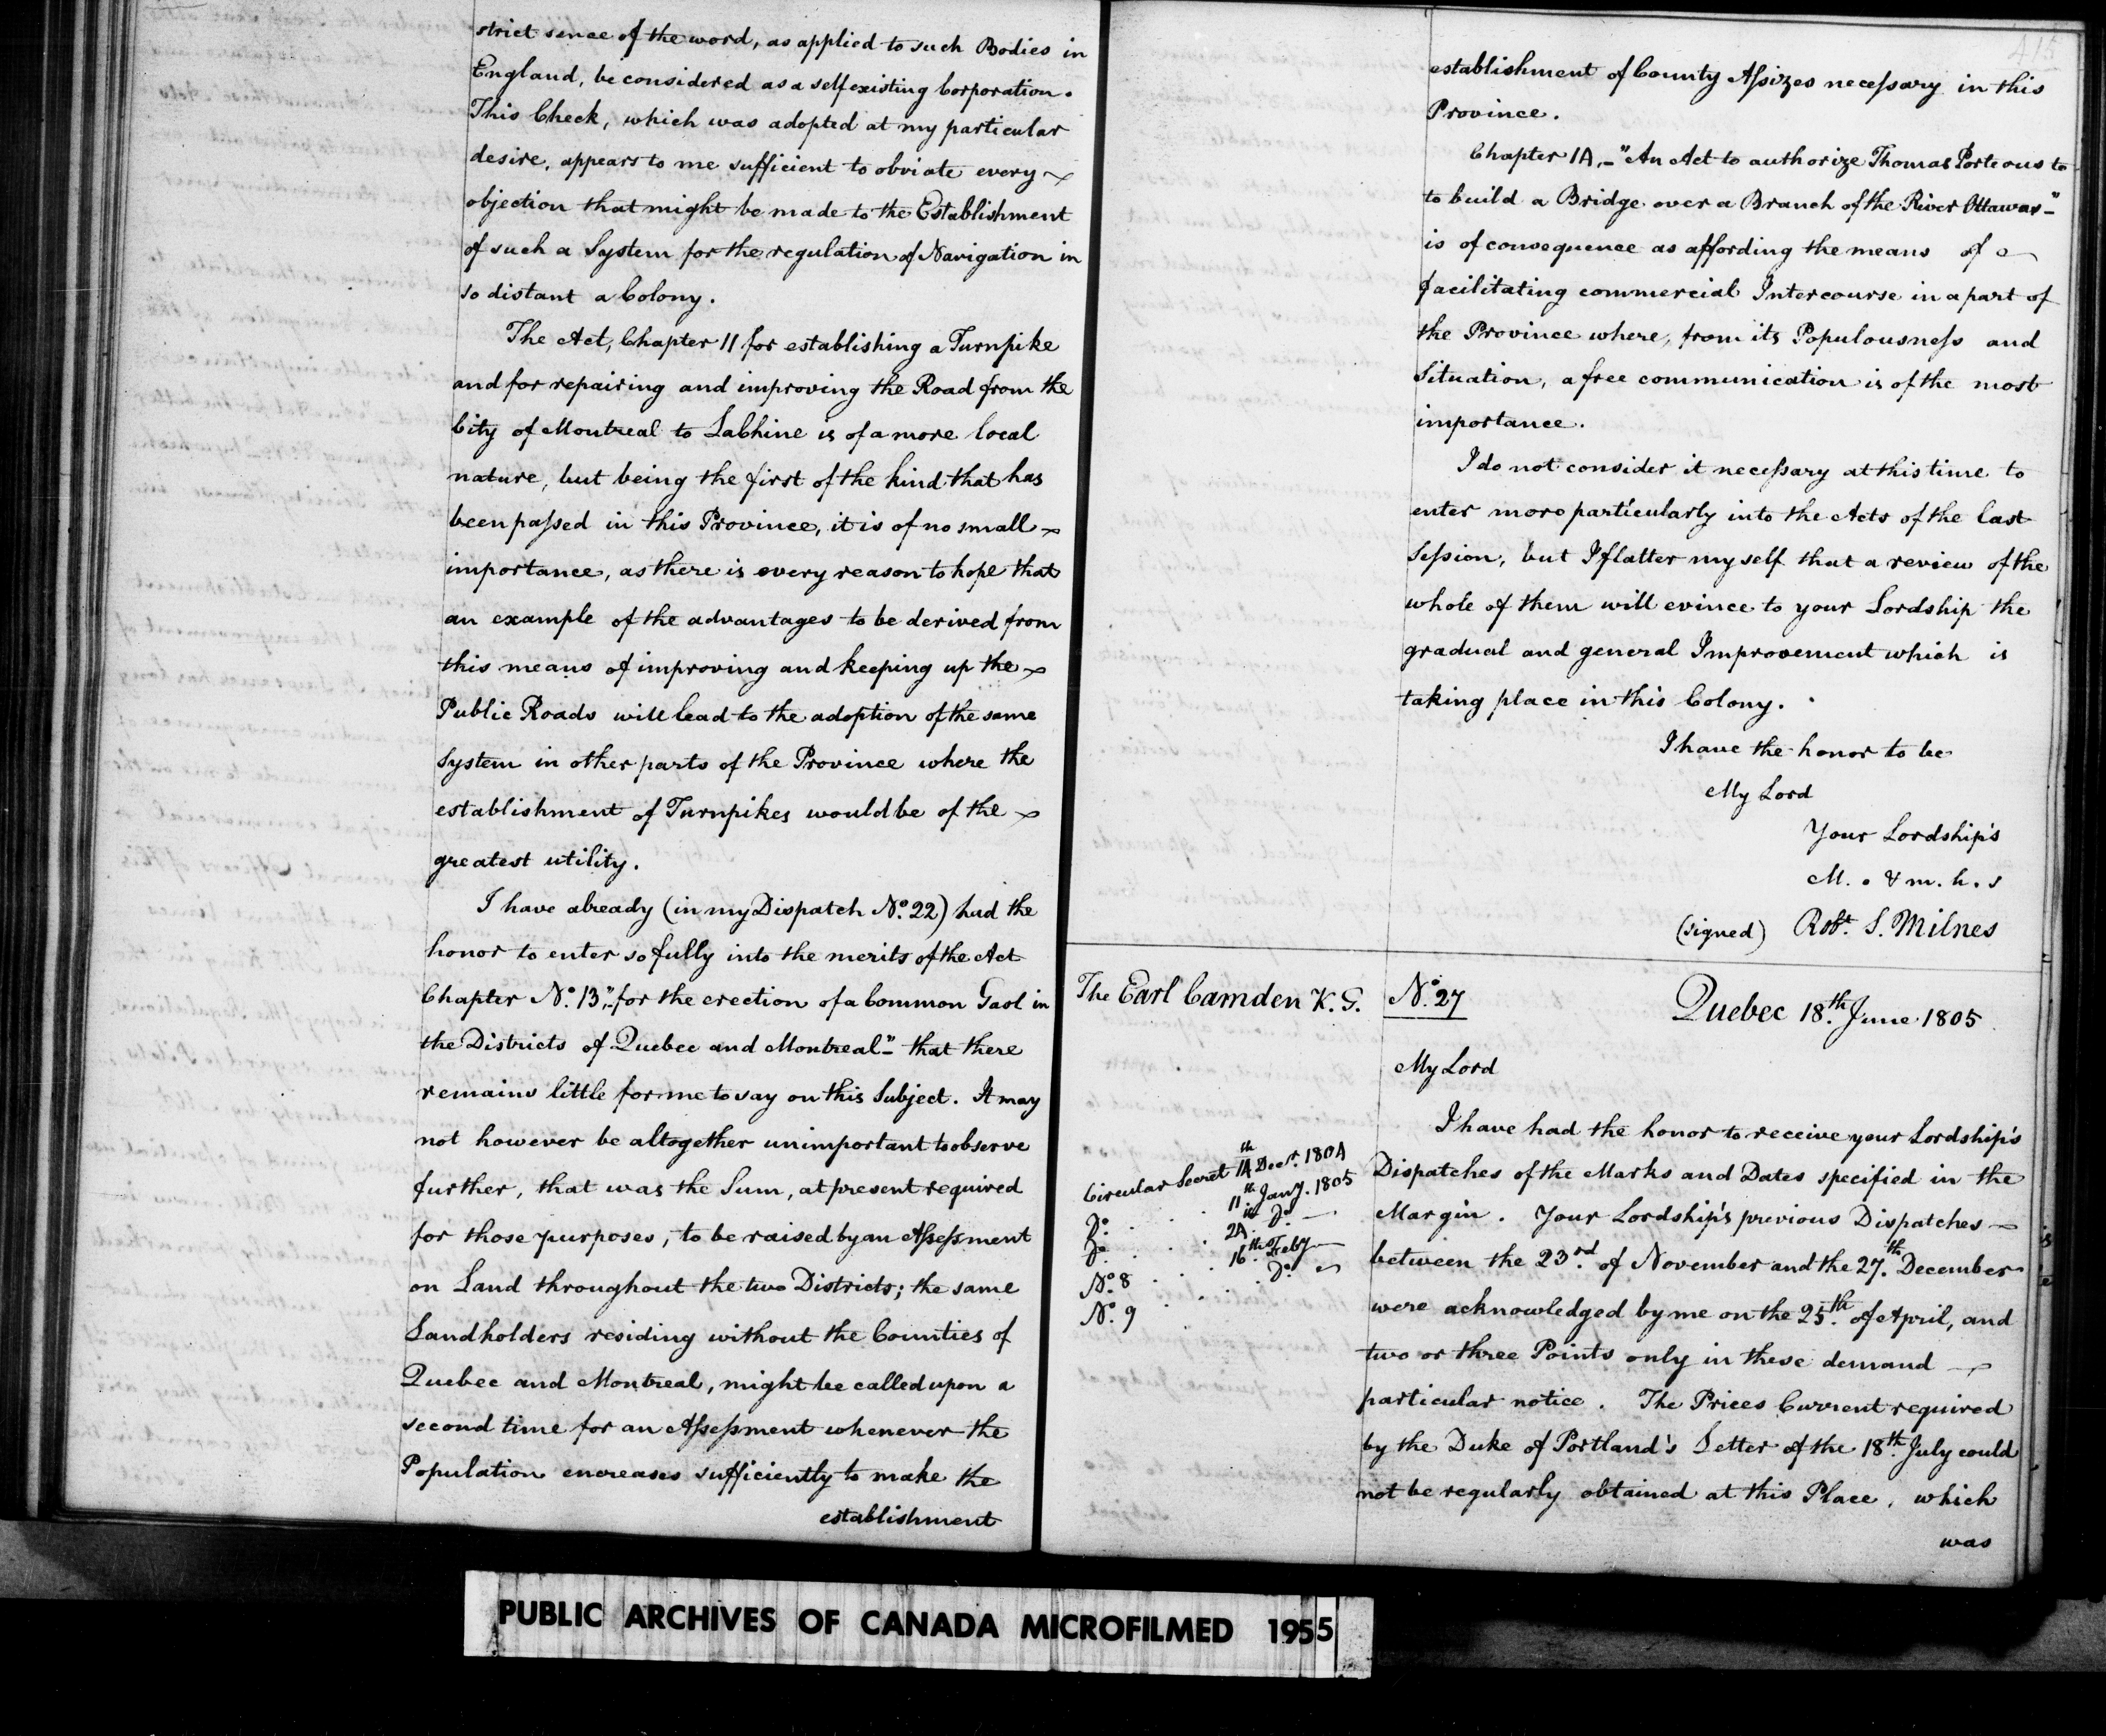 strict sence of the word, as applied to such Bodies in
England, be considered as a self existing Corporation.
This Check, which was adopted at my particular
desire, appears to me sufficient to obviate every
objection that might be made to the Establishment
of such a System for the regulation of Navigation in
so distant a Colony.
The Act, Chapter 11 for establishing a Turnpike
and for repairing and improving the Road from the
City of Montreal to LaChine is of a more local
nature, but being the first of the kind that has
been passed in this Province, it is of no small
importance, as there is every reason to hope that
an example of the advantages to be derived from
this means of improving and keeping up the
Public Roads will lead to the adoption of the same
System in other parts of the Province where the
establishment of Turnpikes would be of the
greatest utility.
I have already (in my Dispatch No. 22) had the
honor to enter so fully into the merits of the Act
Chapter No. 13, "for the erection of a Common Gaol in
the Districts of Quebec and Montreal" that there
remains little for me to say on this Subject. It may
not however be altogether unimportant to observe
further, that was the Sum, at present required
for those purposes, to be raised by an Assessment
on Land throughout the two Districts; the same
Landholders residing without the Counties of
Quebec and Montreal, might be called upon a
second time for an Assessment whenever the
Population encreases sufficiently to make the
establishment
415
establishment of County Assizes necessary in this
Province.
Chapter 14, - "An Act to authorize Thomas Porteous to
to build a Bridge over a Branch of the River Ottawas -"
is of consequence as affording the means of
facilitating commercial Intercourse in a part of
the Province where, from its Populousness and
Situation, a free communication is of the most
importance.
I do not consider it necessary at this time to
enter more particularly into the Acts of the last
Session, but I flatter myself that a review of the
whole of them will evince to your Lordship the
gradual and general Improvement which is
taking place in this Colony.
I have the honor to be
My Lord
Your Lordship's
M. o & m. h. s
(signed) Robt. S. Milnes
The Earl Camden K. G.
No. 27
Quebec 18th June 1805
My Lord
I have had the honor to receive your Lordship's
Circular Secret 14th Decr. 1804
Do. . . 11th Jany. 1805
Do. . . 24th Do. —
No. 8 . . 16th Feby —
No. 9 . . Do. —
Dispatches of the Marks and Dates specified in the
Margin. Your Lordship's previous Dispatches
between the 23rd. of November and the 27th. December
were acknowledged by me on the 25th. of April, and
two or three Points only in these demand
particular notice. The Prices Current required
by the Duke of Portland's Letter of the 18th. July could
not be regularly obtained at this Place, which
was
PUBLIC ARCHIVES OF CANADA MICROFILMED 1955